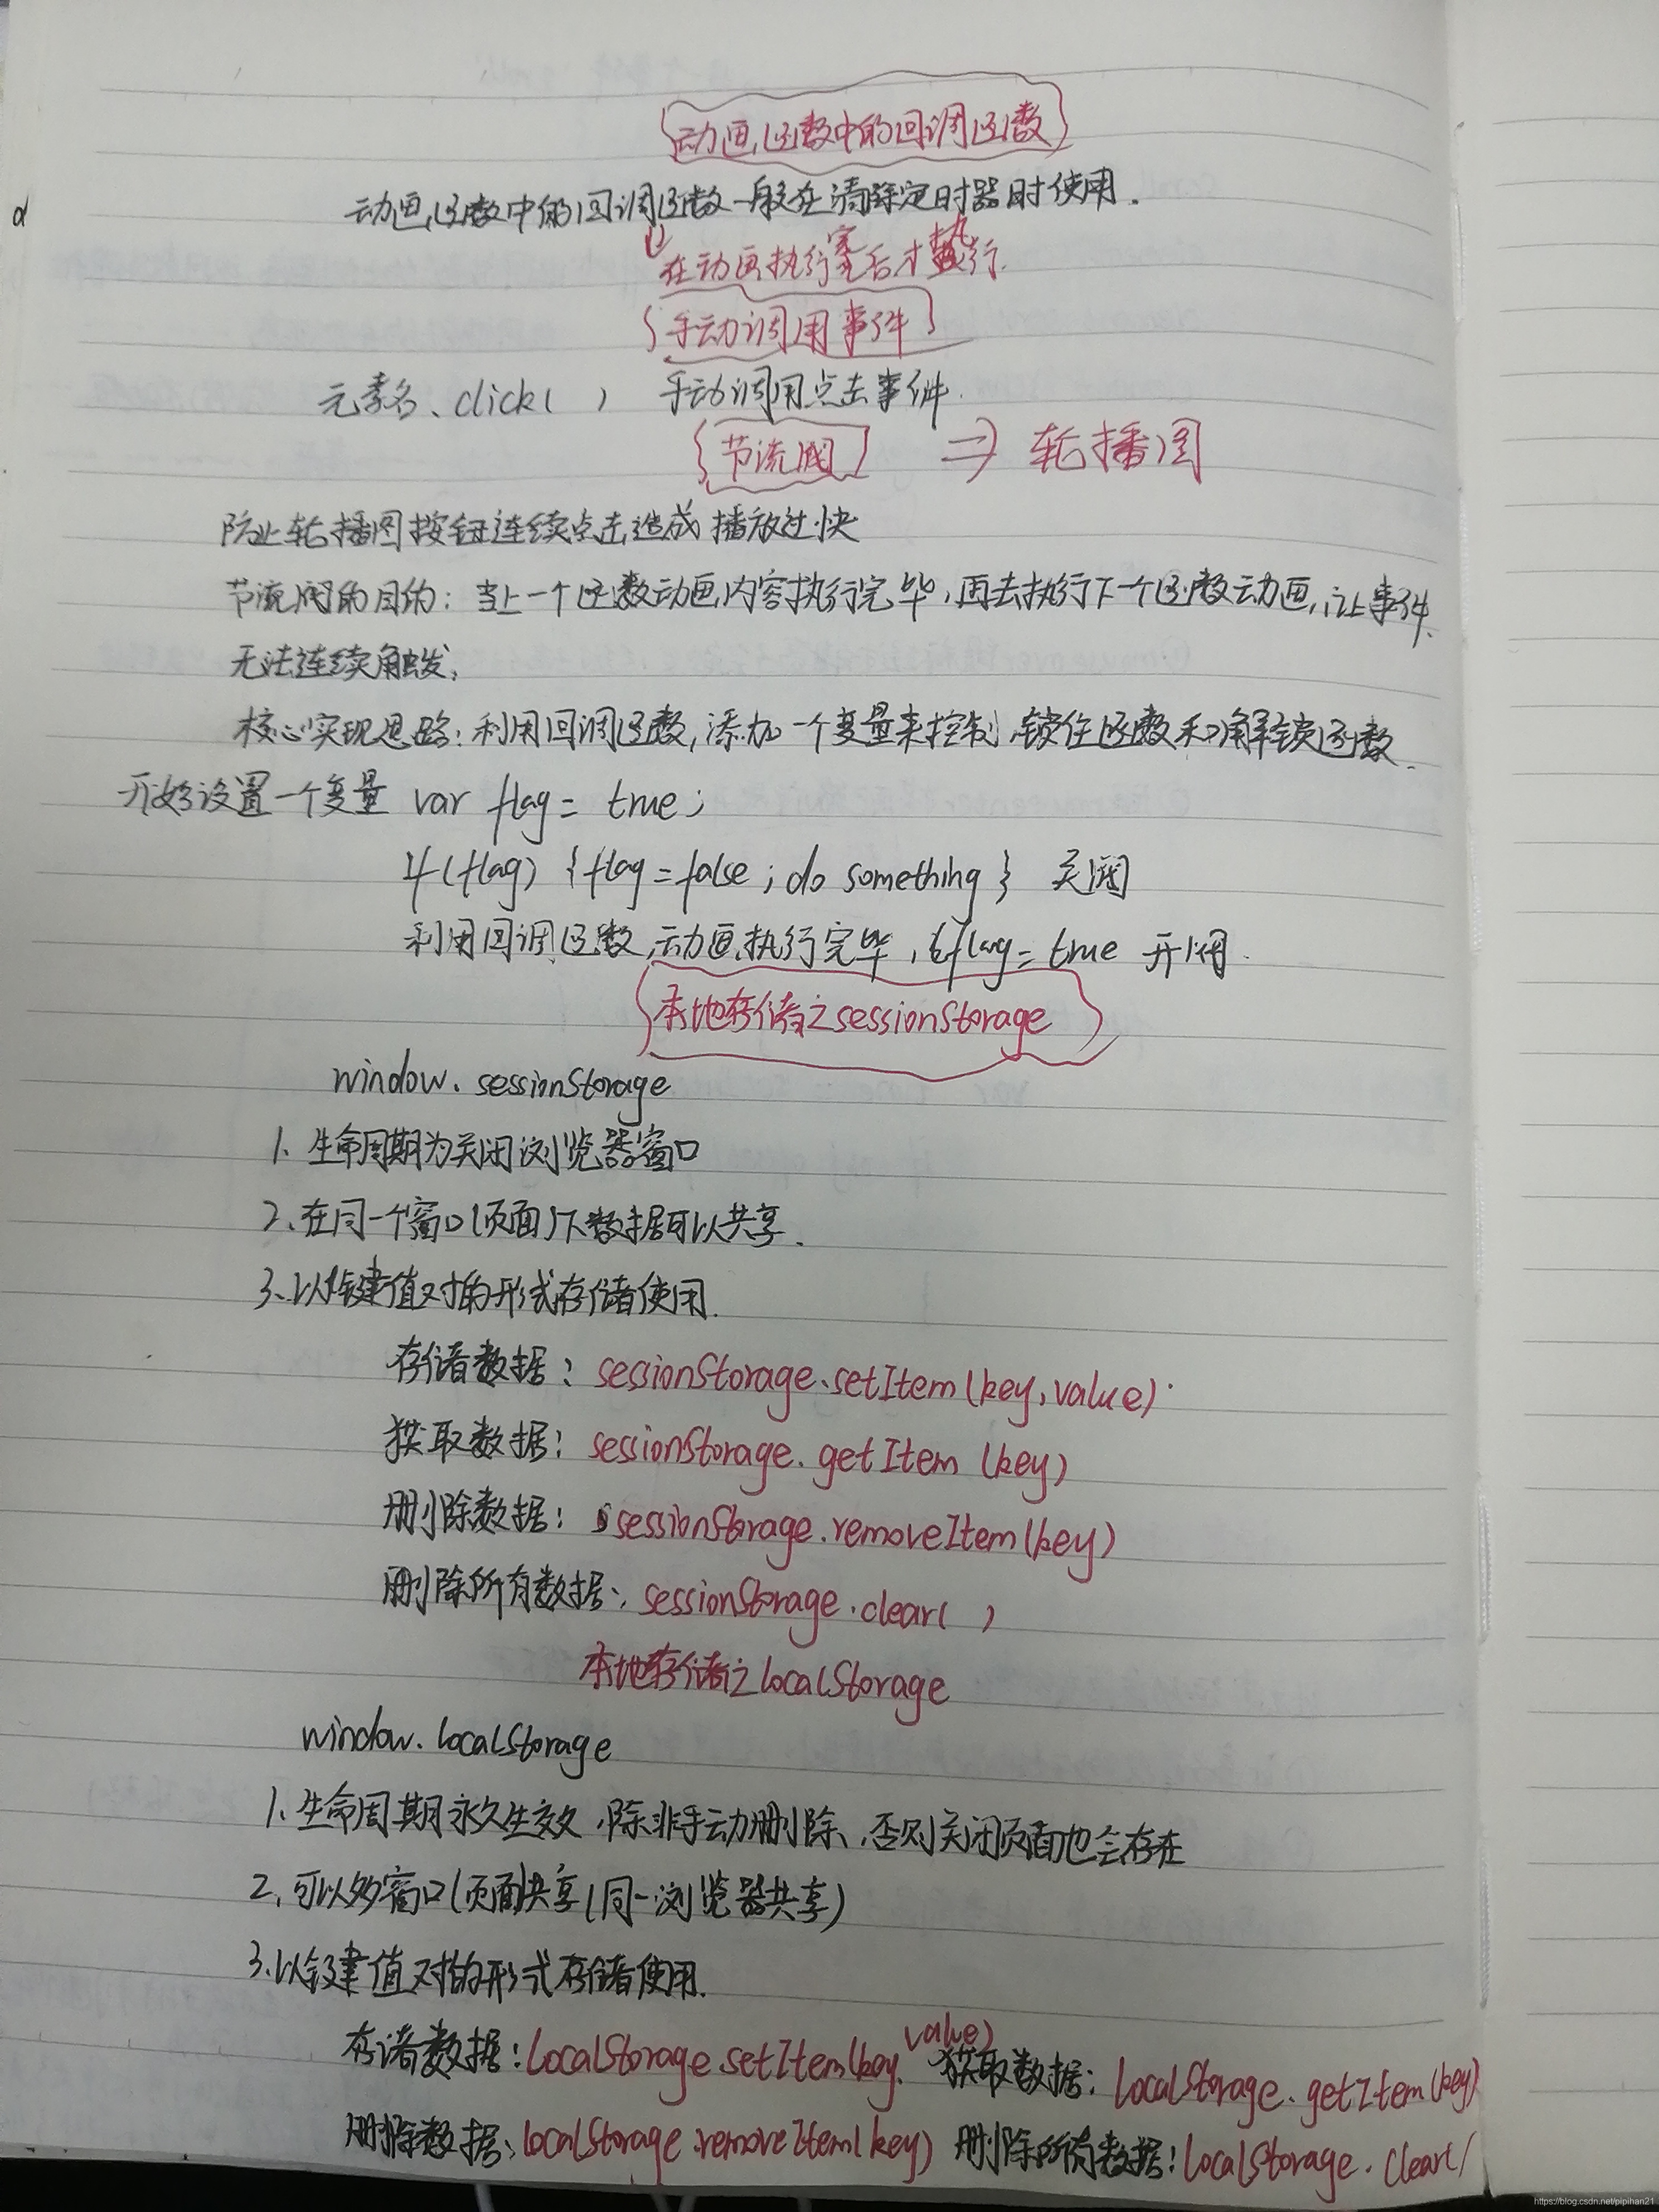 动画函数中的回调函数
动画函数中的回调函数一般在清除定时器时使用.
在动画执行完后才执行.
手动调用事件
元素名、click( ) 手动调用点击事件.
节流阀 ⇒ 轮播图
防止轮播图按钮连续点击造成播放过快
节流阀的目的: 当上一个函数动画内容执行完毕, 再去执行下一个函数动画, 让事件
无法连续触发,
核心实现思路: 利用回调函数, 添加一个变量来控制, 锁住函数和解锁函数.
开始设置一个变量 var flag = true;
if(flag) {flag = false; do something} 关阀
利用回调函数,动画执行完毕, flag = true 开阀.
本地存储之sessionStorage
window. sessionStorage
1. 生命周期为关闭浏览器窗口
2、在同一个窗口(页面)下数据可以共享.
3、以键值对的形式存储使用.
存储数据: sessionStorage.setItem(key,value).
获取数据: sessionStorage. getItem (key)
删除数据: sessionStorage.removeItem(key)
删除所有数据: sessionStorage.clear( )
本地存储之localStorage
window. localStorage
1. 生命周期永久生效, 除非手动删除, 否则关闭页面也会存在
2, 可以多窗口(页面)共享(同一浏览器共享)
3.以键值对的形式存储使用.
存储数据: localStorage.setItem(key, value) 获取数据: localStorage. getItem (key)
删除数据: localStorage.removeItem( key) 删除所有数据: localStorage. clear(
https://blog.csdn.net/pipihan21